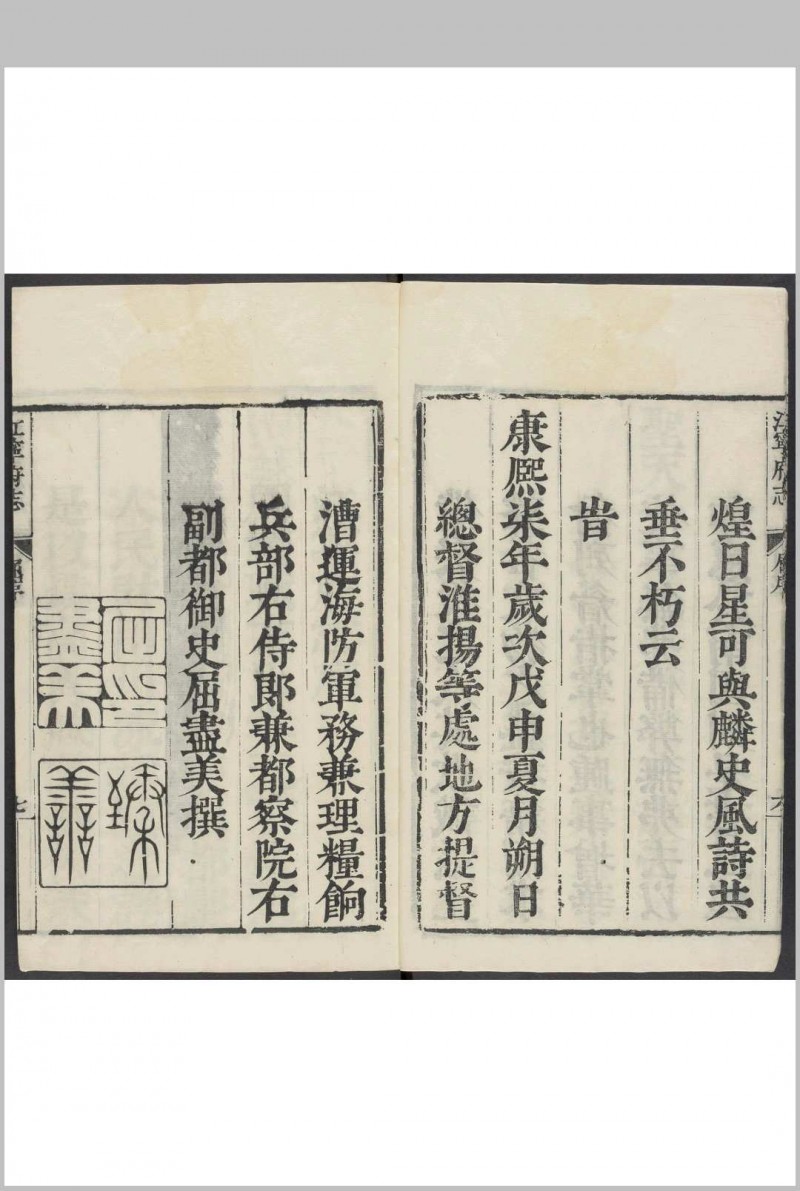 煌日星可與麟史風詩共
垂不朽云
旹
康熙柒年歲次戊申夏月朔日
總督淮揚等處地方提督
漕運海防軍務兼理糧餉
兵部右侍郎兼都察院右
副都御史屈盡美撰
江寧府志
江寧府志
七